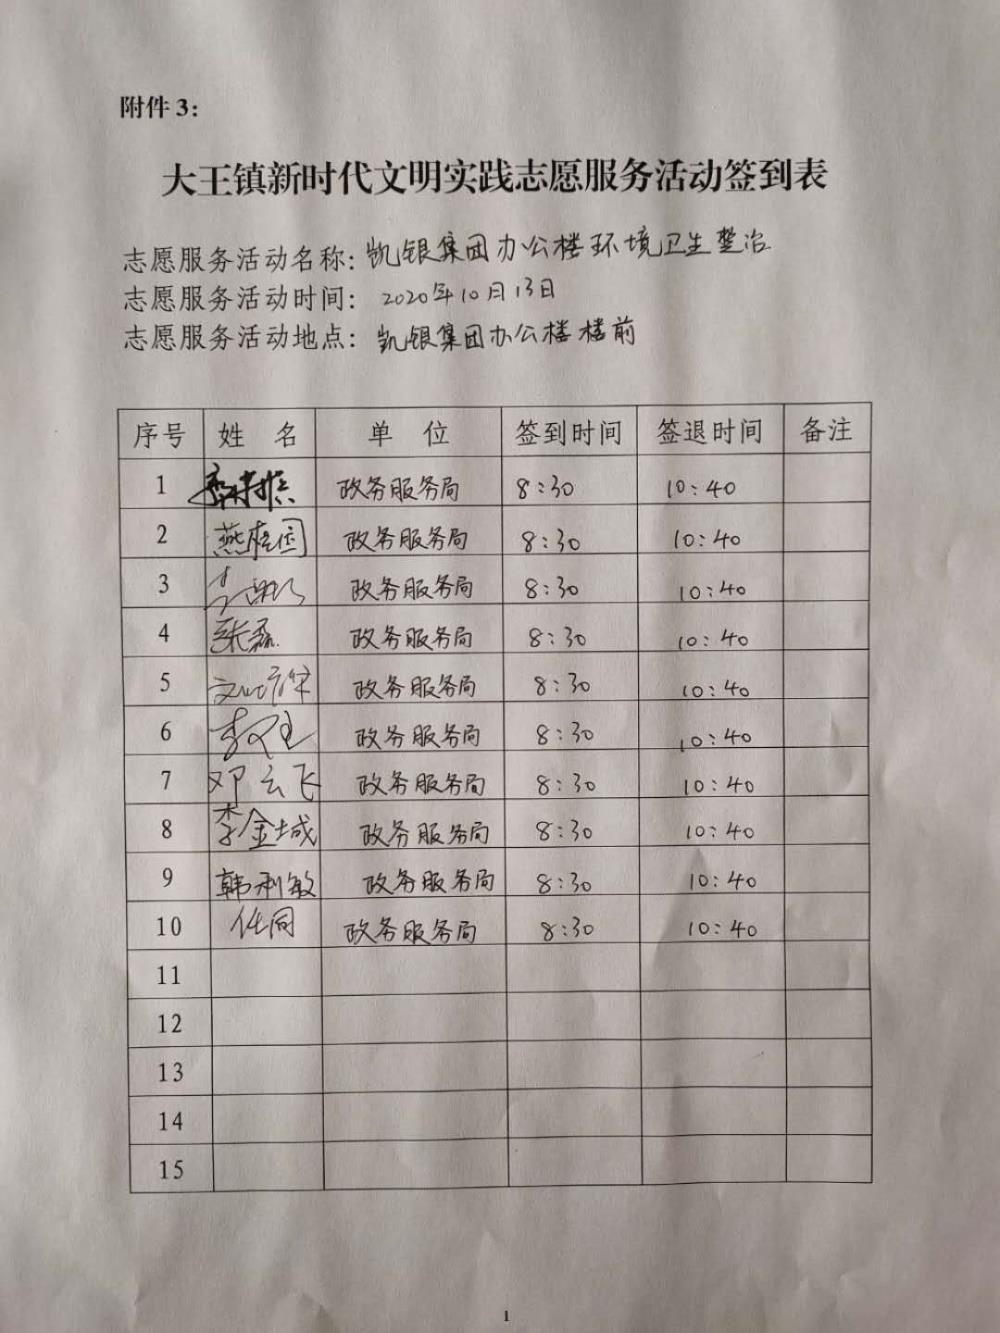 附件 3：
大王镇新时代文明实践志愿服务活动签到表
志愿服务活动名称：凯银集团办公楼环境卫生整治
志愿服务活动时间： 2020年10月13日
志愿服务活动地点：凯银集团办公楼楼前
序号 姓 名 单 位 签到时间 签退时间 备注
1 政务服务局 8:30 10:40
2 政务服务局 8:30 10:40
3 政务服务局 8:30 10:40
4 张磊 政务服务局 8:30 10:40
5 政务服务局 8:30 10:40
6 政务服务局 8:30 10:40
7 邓云飞 政务服务局 8:30 10:40
8 李金城 政务服务局 8:30 10:40
9 韩利敏 政务服务局 8:30 10:40
10 任同 政务服务局 8:30 10:40
11
12
13
14
15
1